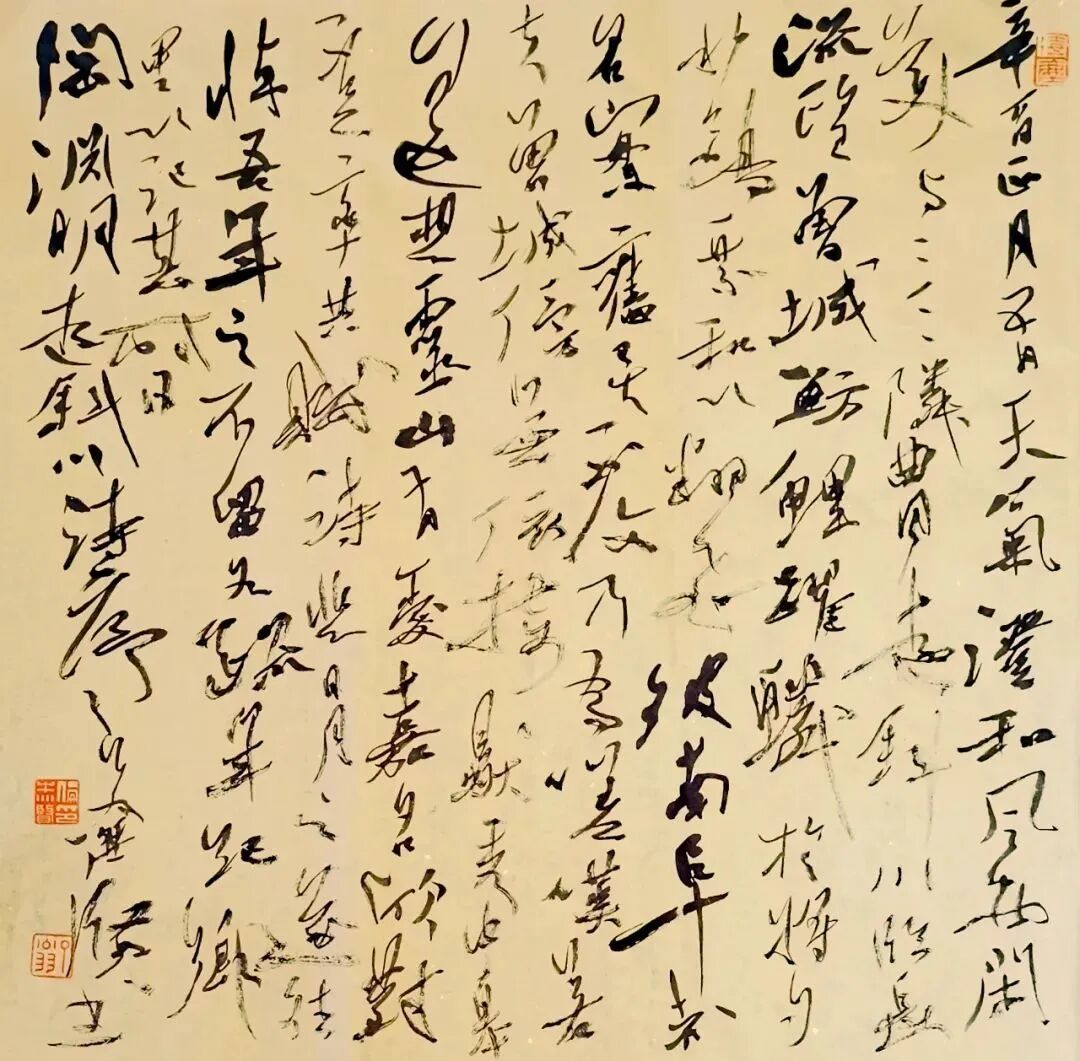 辛酉正月五日天氣澄和風物閑
美与二三隣曲同遊斜川臨長
流望曾城魴鯉躍鱗於將夕
水鷗乘和以翻飛彼南阜者
名山實舊矣不復乃為嗟嘆若
夫曾城傍無依接獨秀中皋
遙想靈山有愛嘉名欣對
不足率共賦詩悲日月之遂往
悼吾年之不留各疏年紀鄉
里以記其時日
陶淵明遊斜川詩序書